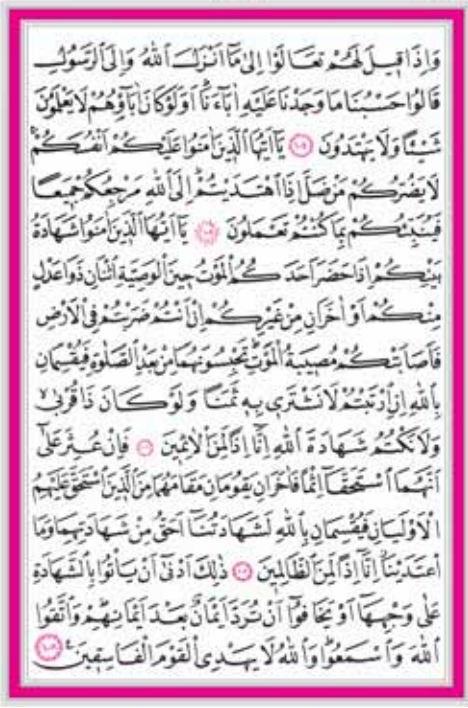 وَاِذَا قٖيلَ لَهُمْ تَعَالَوْا اِلٰى مَٓا اَنْزَلَ اللّٰهُ وَاِلَى الرَّسُولِ
قَالُوا حَسْبُنَا مَا وَجَدْنَا عَلَيْهِ اٰبَٓاءَنَاۜ اَوَلَوْ كَانَ اٰبَٓاؤُ۬هُمْ لَا يَعْلَمُونَ
شَيْـٔاً وَلَا يَهْتَدُونَ ١٠٤ يَٓا اَيُّهَا الَّذٖينَ اٰمَنُوا عَلَيْكُمْ اَنْفُسَكُمْۚ
لَا يَضُرُّكُمْ مَنْ ضَلَّ اِذَا اهْتَدَيْتُمْۜ اِلَى اللّٰهِ مَرْجِعُكُمْ جَمٖيعاً
فَيُنَبِّئُكُمْ بِمَا كُنْتُمْ تَعْمَلُونَ ١٠٥ يَٓا اَيُّهَا الَّذٖينَ اٰمَنُوا شَهَادَةُ
بَيْنِكُمْ اِذَا حَضَرَ اَحَدَكُمُ الْمَوْتُ حٖينَ الْوَصِيَّةِ اثْنَانِ ذَوَا عَدْلٍ
مِنْكُمْ اَوْ اٰخَرَانِ مِنْ غَيْرِكُمْ اِنْ اَنْتُمْ ضَرَبْتُمْ فِى الْاَرْضِ
فَاَصَابَتْكُمْ مُصٖيبَةُ الْمَوْتِۜ تَحْبِسُونَهُمَا مِنْ بَعْدِ الصَّلٰوةِ فَيُقْسِمَانِ
بِاللّٰهِ اِنِ ارْتَبْتُمْ لَا نَشْتَرٖى بِهٖ ثَمَناً وَلَوْ كَانَ ذَا قُرْبٰىۙ
وَلَا نَكْتُمُ شَهَادَةَ اللّٰهِ اِنَّٓا اِذاً لَمِنَ الْاٰثِمٖينَ ١٠٦ فَاِنْ عُثِرَ عَلٰٓى
اَنَّهُمَا اسْتَحَقَّٓا اِثْماً فَاٰخَرَانِ يَقُومَانِ مَقَامَهُمَا مِنَ الَّذٖينَ اسْتَحَقَّ عَلَيْهِمُ
الْاَوْلَيَانِ فَيُقْسِمَانِ بِاللّٰهِ لَشَهَادَتُنَٓا اَحَقُّ مِنْ شَهَادَتِهِمَا وَمَا
اعْتَدَيْنَاۘ اِنَّٓا اِذاً لَمِنَ الظَّالِمٖينَ ١٠٧ ذٰلِكَ اَدْنٰٓى اَنْ يَأْتُوا بِالشَّهَادَةِ
عَلٰى وَجْهِهَٓا اَوْ يَخَافُٓوا اَنْ تُرَدَّ اَيْمَانٌ بَعْدَ اَيْمَانِهِمْۜ وَاتَّقُوا
اللّٰهَ وَاسْمَعُواۜ وَاللّٰهُ لَا يَهْدِى الْقَوْمَ الْفَاسِقٖينَ ١٠٨